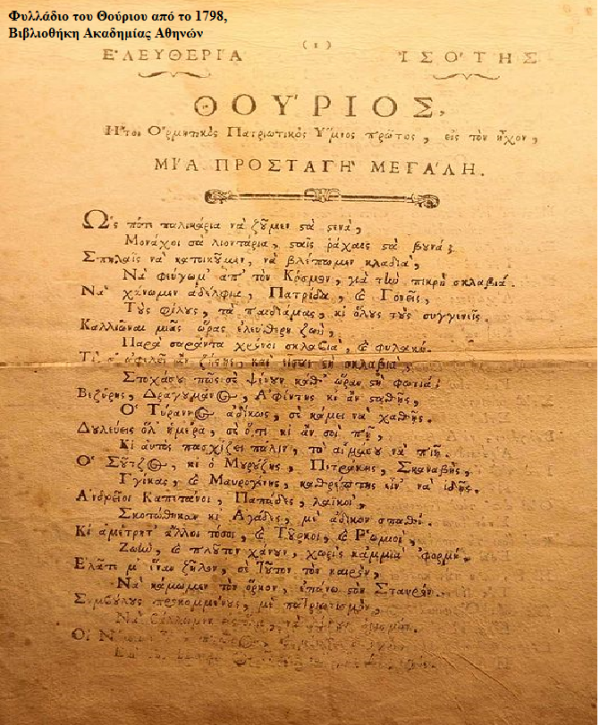 Φυλλάδιο του Θούριου από το 1798,
Βιβλιοθήκη Ακαδημίας Αθηνών
(1)
ΕʼΛΕΥΘΕΡΙΑ ἸΣΟʹΤΗΣ
ΘΟΥʹΡΙΟΣ,
Ἤτοι Ὁρμητικὸς Πατριωτικὸς Ὕμνος πρῶτος, εἰς τὸν ἦχον,
ΜΙʹΑ ΠΡΟΣΤΑΓΗʹ ΜΕΓΑʹΛΗ.
Ὣς πότε παλικάρια νὰ ζῶμεν στὰ στενά,
Μονάχοι σὰ λιοντάρια, σταῖς ῥάχαις στὰ βουνά;
Σπηλαῖς νὰ κατοικοῦμεν, νὰ βλέπωμεν κλαδιά,
Νὰ φεύγωμ' ἀπ' τὸν Κόσμον, γιὰ τὴν πικρὴ σκλαβιά.
Νὰ χάνωμεν ἀδέλφια, Πατρίδα, καὶ Γονεῖς,
Τοὺς φίλους, τὰ παιδιά μας, κι ὅλους τοὺς συγγενεῖς.
Καλλιῶναι μιᾶς ὥρας ἐλεύθερη ζωή,
Παρὰ σαράντα χρόνοι σκλαβιά, καὶ φυλακή.
Τί σ' ὠφελεῖ ἂν ζήσῃς καὶ εἶσαι στὴ σκλαβιά;
Στοχάσου πῶς σὲ ψένουν καθ' ὥραν στὴ φωτιά.
Βεζύρης, Δραγουμάνος, Ἀφέντης κι ἂν σταθῇς,
Ὁ Τύραννος ἀδίκως, σὲ κάμει νὰ χαθῇς.
Δουλεύεις ὅλ' ἡμέρα, σὲ ὅ,τι κι ἂν σοι πῇ,
Κι αὐτὸς πασχίζει πάλιν, τὸ αἷμα σου νὰ πιῇ.
Ὁ Σοῦτζος, κι ὁ Μουρούζης, Πετράκης, Σκαναβῆς,
Γγίκας, καὶ Μαυρογένης, καθρέπτης εἶν' νὰ ἰδῇς.
Ἀνδρεῖοι Καπετάνοι, Παπάδες, λαϊκοί,
Σκοτώθηκαν κι Ἀγάδες, μὲ ἄδικον σπαθί.
Κι ἀμέτρητ' ἄλλοι τόσοι, καὶ Τοῦρκοι, καὶ Ῥωμιοί,
Ζωήν, καὶ πλοῦτον χάνουν, χωρὶς κάμμιὰ 'φορμή.
Ἐλᾶτε μ' ἕναν ζῆλον, σὲ τοῦτον τὸν καιρόν,
Νὰ κάμωμεν τὸν ὅρκον, ἐπάνω στὸν Σταυρόν.
Συμβούλους προκομμένους, μὲ πατριωτισμόν,
Νὰ
Οἱ